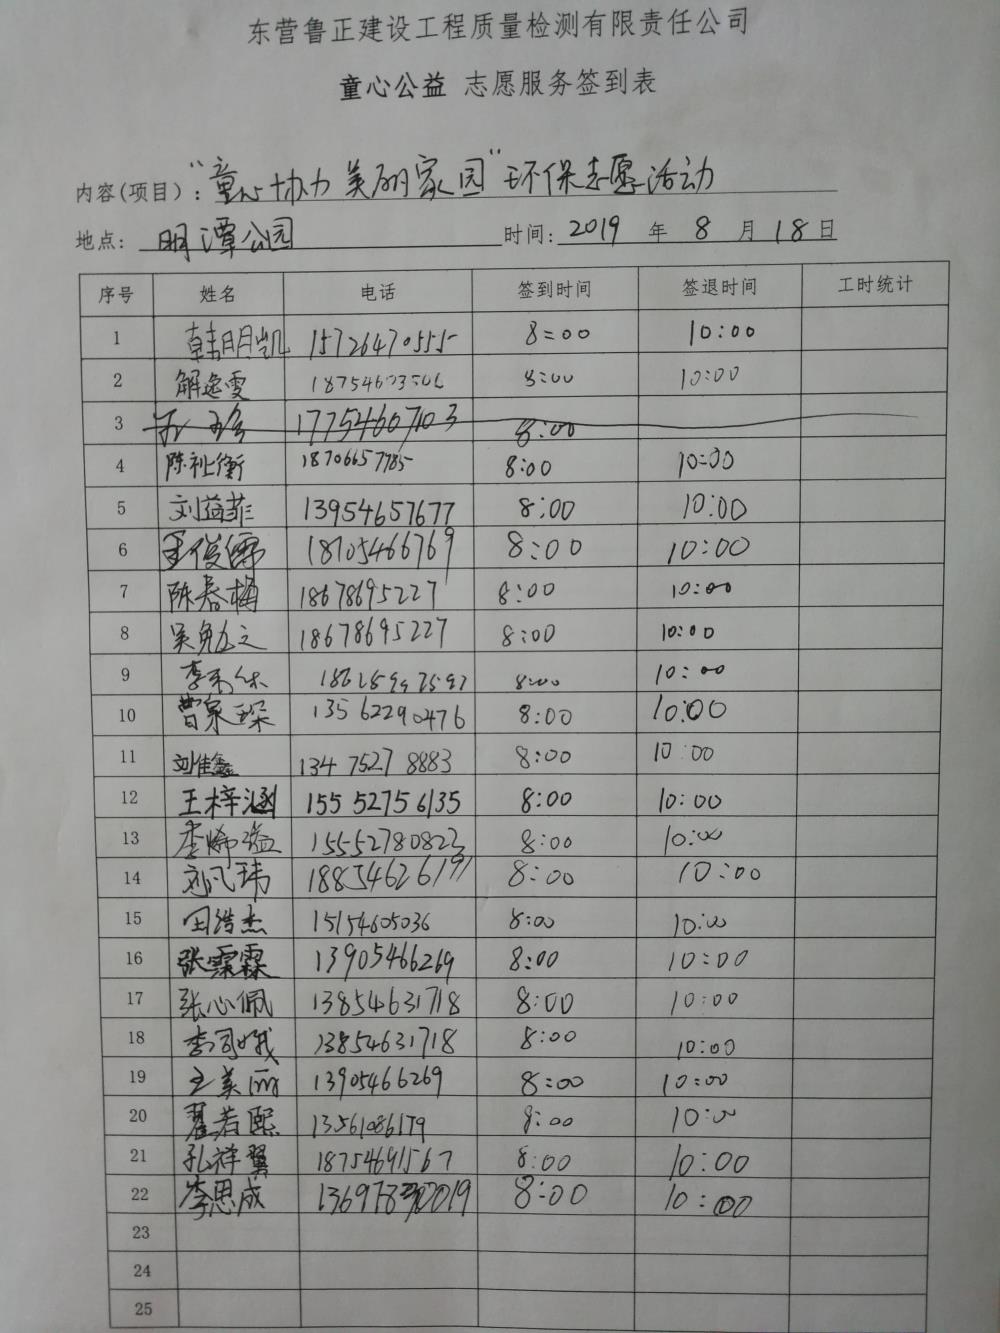 东营鲁正建设工程质量检测有限责任公司
童心公益 志愿服务签到表
内容(项目)："童心协力 美丽家园"环保志愿活动
地点：明潭公园 时间：2019 年 8 月 18 日
序号 姓名 电话 签到时间 签退时间 工时统计
1 韩明凯 15726470555 8:00 10:00
2 解逸雯 8:00 10:00
3 17754607103 8:00
4 陈祉衡 18706657785 8:00 10:00
5 刘益菲 13954657677 8:00 10:00
6 王俊儒 18705466769 8:00 10:00
7 陈春梅 18678695227 8:00 10:00
8 18678695227 8:00 10:00
9 8:00 10:00
10 曹泉琛 13562290476 8:00 10:00
11 刘佳鑫 13475278883 8:00 10:00
12 王梓涵 15552756135 8:00 10:00
13 15552780823 8:00 10:00
14 18854626191 8:00 10:00
15 田浩杰 15154605036 8:00 10:00
16 张霖霖 13905466269 8:00 10:00
17 张心佩 13854631718 8:00 10:00
18 李司娥 13854631718 8:00 10:00
19 王美丽 13905466269 8:00 10:00
20 翟若熙 13561086179 8:00 10:00
21 孔祥翼 18754691567 8:00 10:00
22 李思成 8:00 10:00
23
24
25